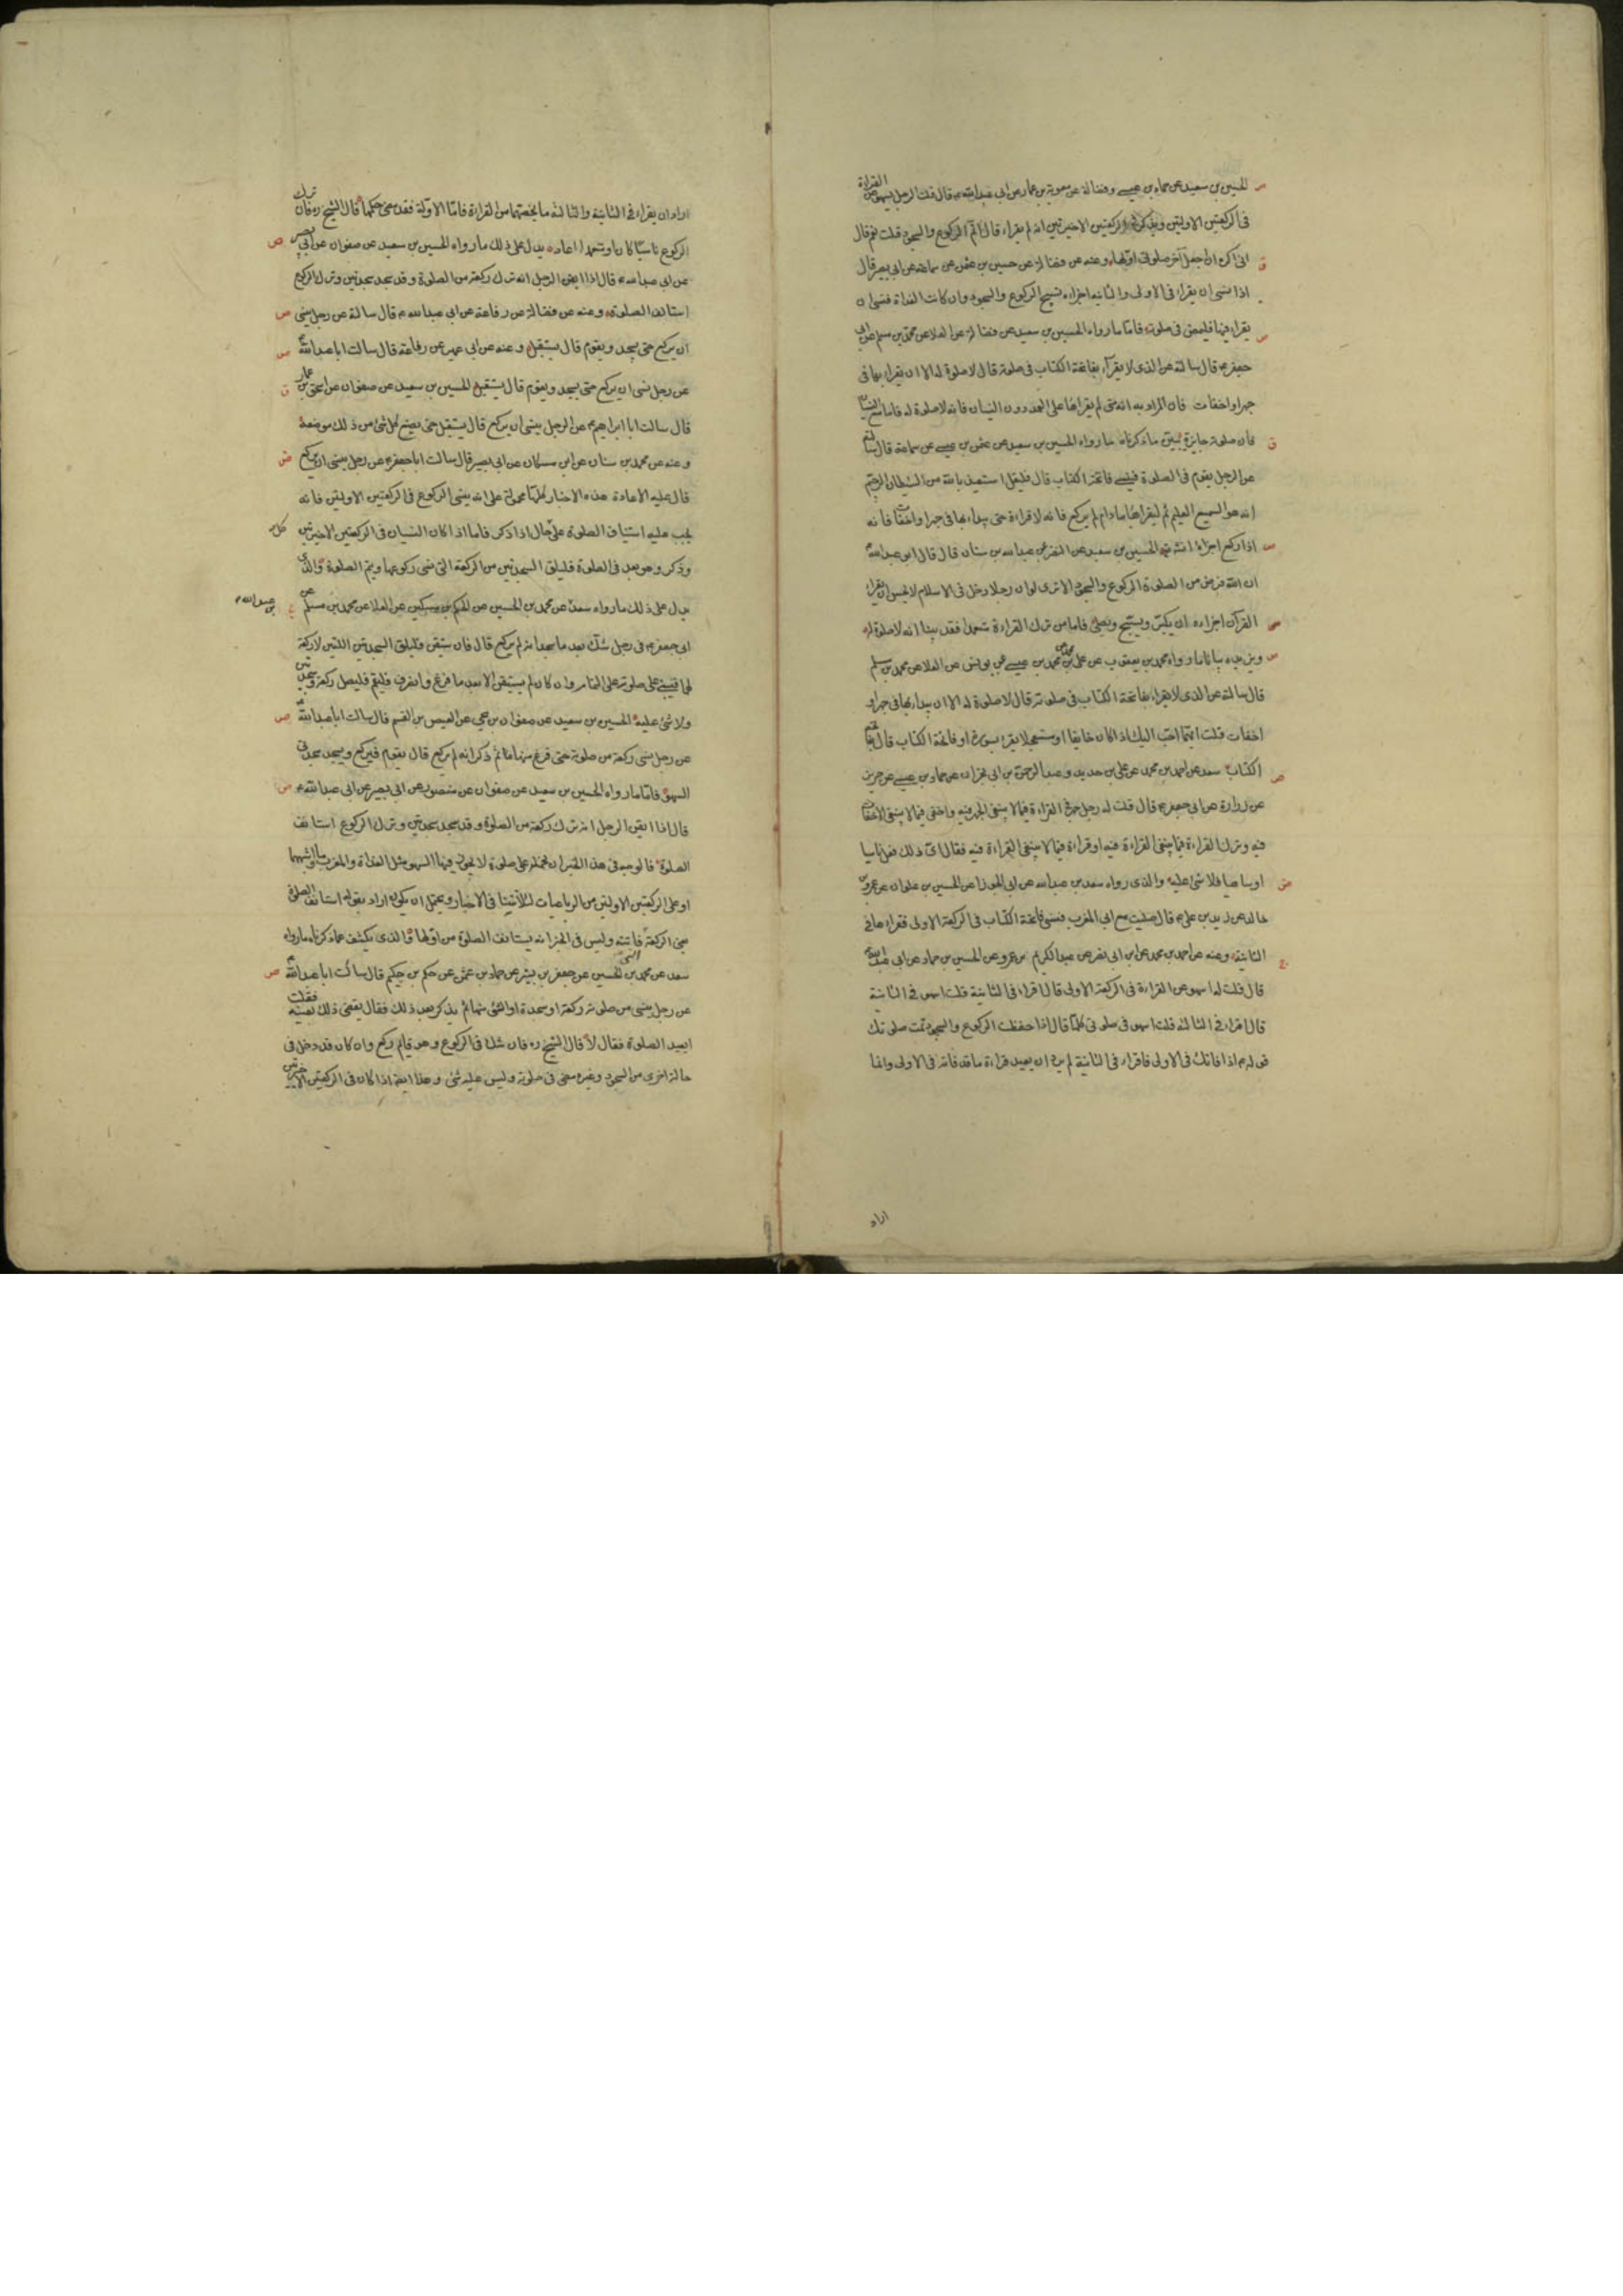 الحسين بن سعيد عن حماد بن عيسى وفضالة عن معوية بن عمار عن ابى عبدالله ع قال قلت الرجل يسهو عن القراءة
فى الركعتين الاولتين ويذكر فى الركعتين الاخيرتين انه لم يقراء قال اتم الركوع والسجود قلت نعم قال
انى اكره ان اجعل آخر صلوتى اولها وعنه عن فضالة عن حسين بن عثمن عن سماعة عن ابى بصير قال
اذا نسى ان يقراء فى الاولى والثانية اجزاه تسبيح الركوع والسجود وان كانت الغداة فنسى ان
يقراء فيها فليمض فى صلوته فاما ما رواه الحسين بن سعيد عن فضالة عن العلا عن محمد بن مسلم عن ابى
جعفر ع قال سالته عن الذى لا يقراء بفاتحة الكتاب فى صلوته قال لا صلوة له الا ان يقراء بها فى
جهر او اخفات فان المراد به انه متى لم يقراها على العمد دون النسيان فانه لا صلوة له فاما مع النسيان
فان صلوته جايزة يبين ما ذكرناه ما رواه الحسين بن سعيد عن عثمن بن عيسى عن سماعة قال سالته
عن الرجل يقوم فى الصلوة فينسى فاتحة الكتاب قال فليقل استعيذ بالله من الشيطان الرجيم
انه هو السميع العليم ثم ليقراها ما دام لم يركع فانه لا قراءة حتى يبداء بها فى جهر او اخفات فانه
اذا ركع اجزاه انشه الحسين بن سعيد عن النضر عن عبدالله بن سنان قال قال ابو عبدالله
ان الله فرض من الصلوة الركوع والسجود الا ترى لو ان رجلا دخل فى الاسلام لا يحسن ان يقراء
القرآن اجزاءه ان يكبر ويسبح ويصلى فاما من ترك القراءة متعمدا فقد بينا انه لا صلوة له
ويزيده بيانا ما رواه محمد بن يعقوب عن على بن محمد عن محمد بن عيسى عن يونس عن العلا عن محمد بن مسلم
قال سالته عن الذى لا يقراء بفاتحة الكتاب فى صلوته قال لا صلوة له الا ان يبداء بها فى جهر او
اخفات قلت ايهما احب اليك اذا كان خايفا او مستعجلا يقرء بسورة او فاتحة الكتاب قال فاتحة
الكتاب سعد عن احمد بن محمد عن على بن حديد وعبدالرحمن بن ابى نجران عن حماد بن عيسى عن حريز
عن زرارة عن ابى جعفر ع قال قلت له رجل جهر فى القراءة فيما لا ينبغى الجهر فيه واخفى فيما لا ينبغى الاخفات
فيه وترك القراءة فيما ينبغى القراءة فيه او قراءة فيما لا ينبغى القراءة فيه فقال اى ذلك فعل ناسيا
او ساهيا فلا شئ عليه والذى رواه سعد بن عبدالله عن ابى الجوزا عن الحسين بن علوان عن عمرو بن
خالد عن زيد بن على ع قال صليت مع ابى المغرب فنسى فاتحة الكتاب فى الركعة الاولى فقراءها فى
الثانية وعنه عن احمد بن محمد عن ابن ابى نصر عن عبدالكريم بن عمرو عن الحسين بن حماد عن ابى عبدالله
قال قلت له اسهو عن القراءة فى الركعة الاولى قال اقراء فى الثانية قلت اسهو فى الثانية
قال اقراء فى الثالثة قلت اسهو فى صلوتى كلها قال اذا حفظت الركوع والسجود تمت صلوتك
قوله ع اذا فاتك فى الاولى فاقراء فى الثانية لم يرد ان يعيد قراءة ما قد فاته فى الاولى وانما
اراد
اراد ان يقراء فى الثانية والثالثة ما يخصهما من القراءة فاما الاولة فقد مضى حكمها قال الشيخ ره فان ترك
الركوع ناسيا كان او متعمدا اعاده يدل على ذلك ما رواه الحسين بن سعيد عن صفوان عن ابى بصير
عن ابى عبدالله ع قال اذا ايقن الرجل انه ترك ركعة من الصلوة وقد سجد سجدتين وترك الركوع
استانف الصلوة وعنه عن فضالة عن رفاعة عن ابى عبدالله ع قال سالته عن رجل ينسى
ان يركع حتى يسجد ويقوم قال يستقبل وعنه عن ابى عمير عن رفاعة قال سالت ابا عبدالله
عن رجل نسى ان يركع حتى يسجد ويقوم قال يستقبل الحسين بن سعيد عن صفوان عن اسحق بن عمار
قال سالت ابا ابراهيم ع عن الرجل ينسى ان يركع قال يستقبل حتى يضع كل شئ من ذلك موضعه
وعنه عن محمد بن سنان عن ابن مسكان عن ابى بصير قال سالت ابا جعفر ع عن رجل ينسى ان يركع
قال عليه الاعادة هذه الاخبار كلها محمولة على انه ينسى الركوع فى الركعتين الاولتين فانه
يجب عليه استيناف الصلوة على كل حال اذا ذكر فاما اذا كان النسيان فى الركعتين الاخيرتين
وذكر وهو بعد فى الصلوة فليلق السجدتين من الركعة التى نسى ركوعها ويتم الصلوة والذى
يدل على ذلك ما رواه سعد بن عبدالله عن محمد بن الحسين عن الحكم بن مسكين عن العلا عن محمد بن مسلم عن
ابى جعفر ع فى رجل شك بعد ما سجد انه لم يركع قال فان استيقن فليلق السجدتين اللتين لا ركعة
لهما فيبنى على صلوته على التمام وان كان لم يستيقن الا بعد ما فرغ وانصرف فليقم فليصل ركعة وسجدتين
ولا شئ عليه الحسين بن سعيد عن صفوان بن يحيى عن العيص بن القسم قال سالت ابا عبدالله
عن رجل نسى ركعة من صلوته حتى فرغ منها ثم ذكر انه لم يركع قال يقوم فيركع ويسجد سجدتى
السهو فاما ما رواه الحسين بن سعيد عن صفوان عن منصور عن ابى بصير عن ابى عبدالله ع
قال اذا ايقن الرجل انه ترك ركعة من الصلوة وقد سجد سجدتين وترك الركوع استانف
الصلوة فالوجه فى هذا الخبر ان نحمله على صلوة لا يجوز فيها السهو مثل الغداة والمغرب وما اشبهها
او على الركعتين الاولتين من الرباعيات لئلا تتنافى الاخبار ويحتمل ان يكون اراد بقوله استانف الصلوة
يعنى الركعة التى فاتته وليس فى الخبر انه يستانف الصلوة من اولها والذى يكشف عما ذكرناه ما رواه
سعد عن محمد بن الحسين عن جعفر بن بشير عن حماد بن عثمن عن حكم بن حكيم قال سالت ابا عبدالله
عن رجل ينسى من صلوته ركعة او سجدة او الشئ منها ثم يذكر بعد ذلك فقال يقضى ذلك بعينه فقلت
ايعيد الصلوة فقال لا قال الشيخ ره فان شك فى الركوع وهو قايم ركع وان كان قد دخل فى
حالة اخرى من السجود وغيره مضى فى صلوته وليس عليه شئ وهذا ايضا اذا كان فى الركعتين الاخيرتين